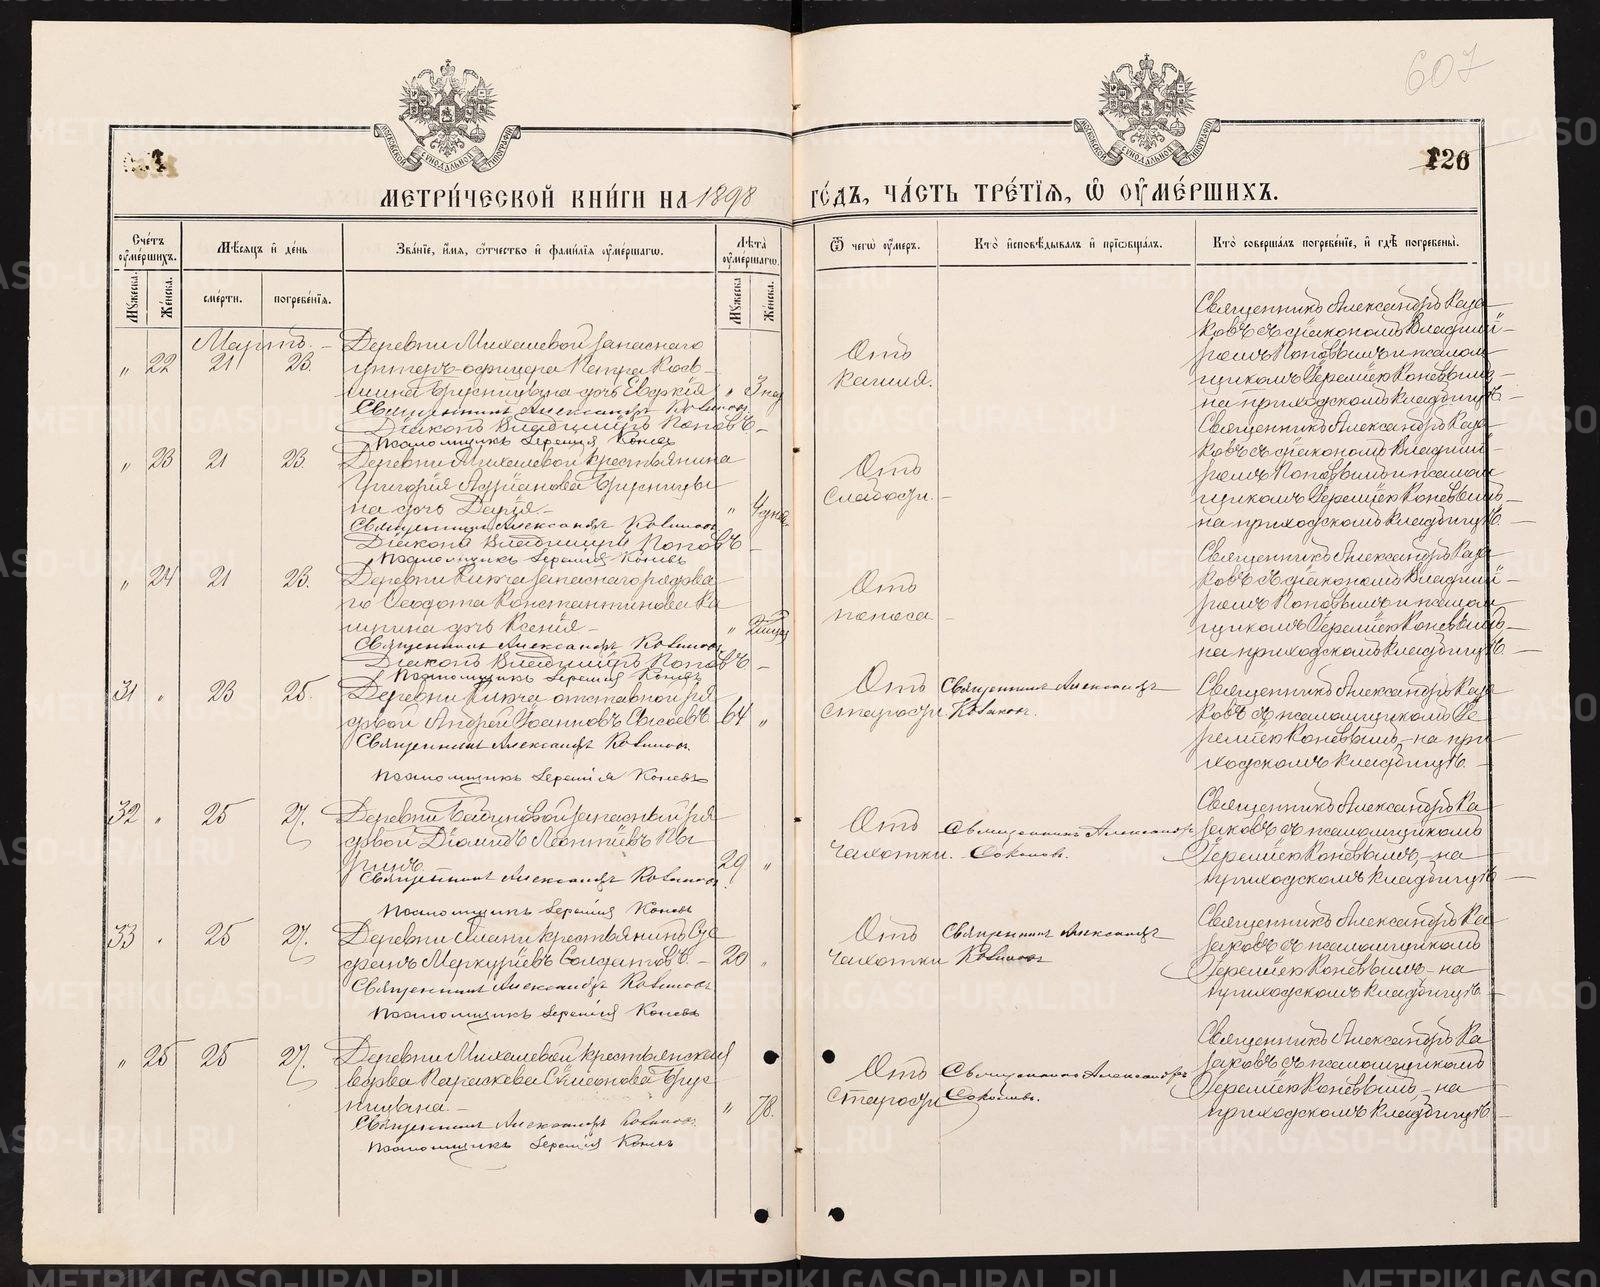 607
126
МЕТРИ́ЧЕСКОЙ КНИ́ГИ НА 1898 ГО́ДЪ, ЧА́СТЬ ТРЕ́ТІЯ, Ѡ ОУМЕ́РШИХЪ.
Счетъ оумершихъ.
Мѣсяцъ и день
Званіе, имя, отчество и фамилія оумершагѡ.
Лѣта оумершагѡ.
Ѿ чегѡ оумеръ.
Кто исповѣдывалъ и пріобщалъ.
Кто совершалъ погребеніе, и гдѣ погребены.
Мужеска.
Женска.
смерти.
погребенія.
Мужеска
Женска.
Мартъ.
„ 22 21 23.
Деревни Михалевой запаснаго
унтеръ-офицера Петра Косъ-
мина Брусницына дочь Евдокія
„ 3 нед
Священникъ Александръ Казаковъ
Діаконъ Владиміръ Поповъ
Псаломщикъ Іеремія Коневъ
Отъ
кашля.
Священникъ Александръ Каза
ковъ съ діакономъ Владимі-
ромъ Поповымъ и псалом
щикомъ Іереміею Коневымъ
на приходскомъ кладбищѣ
„ 23 21 23.
Деревни Михалевой крестьянина
Григорія Адріанова Брусницы
на дочь Дарія
„ 4 дня
Священникъ Александръ Казаковъ
Діаконъ Владиміръ Поповъ
Псаломщикъ Іеремія Коневъ
Отъ
слабости.
Священникъ Александръ Каза
ковъ съ діакономъ Владимі
ромъ Поповымъ и псалом
щикомъ Іереміею Коневымъ
на приходскомъ кладбищѣ.
„ 24 21 23.
Деревни запаснаго рядова
го Ѳеодота Константинова Ка
дочь Ксенія
„
Священникъ Александръ Казаковъ
Діаконъ Владиміръ Поповъ
Псаломщикъ Іеремія Коневъ
Отъ
поноса
Священникъ Александръ Каза
ковъ съ діакономъ Владимі
ромъ Поповымъ и псалом
щикомъ Іереміею Коневымъ
на приходскомъ кладбищѣ.
31 „ 23 25.
Деревни отставной ря
довой Андрей Іоанновъ Сысоевъ
64 „
Священникъ Александръ Казаковъ
Псаломщикъ Іеремія Коневъ
Отъ
старости
Священникъ Александръ
Казаковъ.
Священникъ Александръ Каза
ковъ съ псаломщикомъ Іе
реміею Коневымъ на при
ходскомъ кладбищѣ.
32 „ 25 27.
Деревни запасный ря
довой Діомидъ Леонтіевъ Пы
29 „
Священникъ Александръ Казаковъ
Псаломщикъ Іеремія Коневъ
Отъ
чахотки.
Священникъ Александръ
Соколовъ.
Священникъ Александръ Ка
заковъ съ псаломщикомъ
Іереміею Коневымъ, на
приходскомъ кладбищѣ
33 „ 25 27.
Деревни крестьянинъ
Меркурьевъ Солдатовъ
20 „
Священникъ Александръ Казаковъ
Псаломщикъ Іеремія Коневъ
Отъ
чахотки
Священникъ Александръ
Казаковъ
Священникъ Александръ Ка
заковъ съ псаломщикомъ
Іереміею Коневымъ на
приходскомъ кладбищѣ.
„ 25 25 27.
Деревни Михалевой крестьянская
вдова Параскева Симеонова Брус
ницына
„ 78.
Священникъ Александръ Казаковъ
Псаломщикъ Іеремія Коневъ
Отъ
старости
Священникъ Александръ
Соколовъ.
Священникъ Александръ Ка
заковъ съ псаломщикомъ
Іереміею Коневымъ, на
приходскомъ кладбищѣ
METRIKI.GASO-URAL.RU